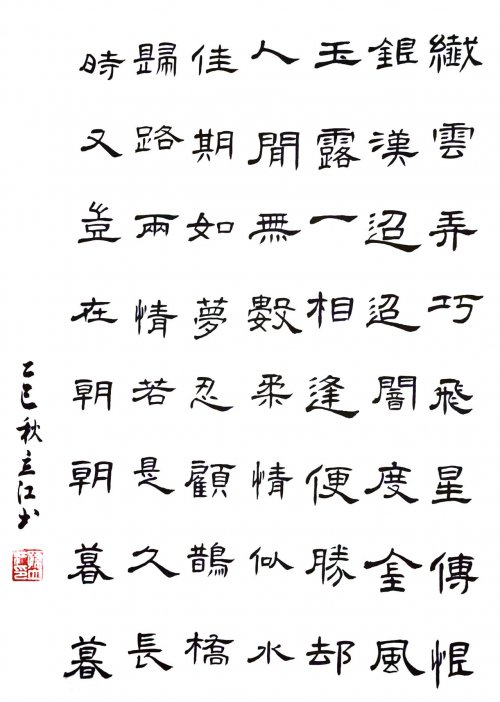 纖雲弄巧飛星傳恨
銀漢迢迢闇度金風
玉露一相逢便勝却
人間無數柔情似水
佳期如夢忍顧鵲橋
歸路兩情若是久長
時又豈在朝朝暮暮
乙巳秋立江书